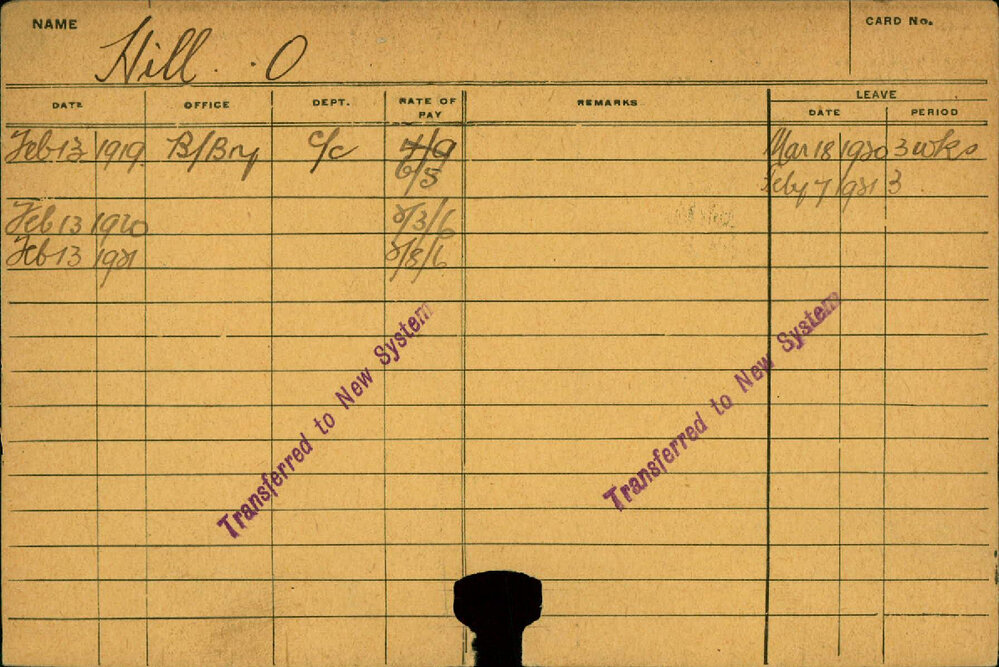 NAME
Hill. O
CARD No.
DATE OFFICE DEPT. RATE OF PAY REMARKS LEAVE
DATE PERIOD
Feb 13 1919 B/Bry C/C 7/9 Mar 18 1920 3 wks
6/5 Feby 7 1921 3
Feb 13 1920 2/3/6
Feb 13 1921 2/8/6
Transferred to New System
Transferred to New System